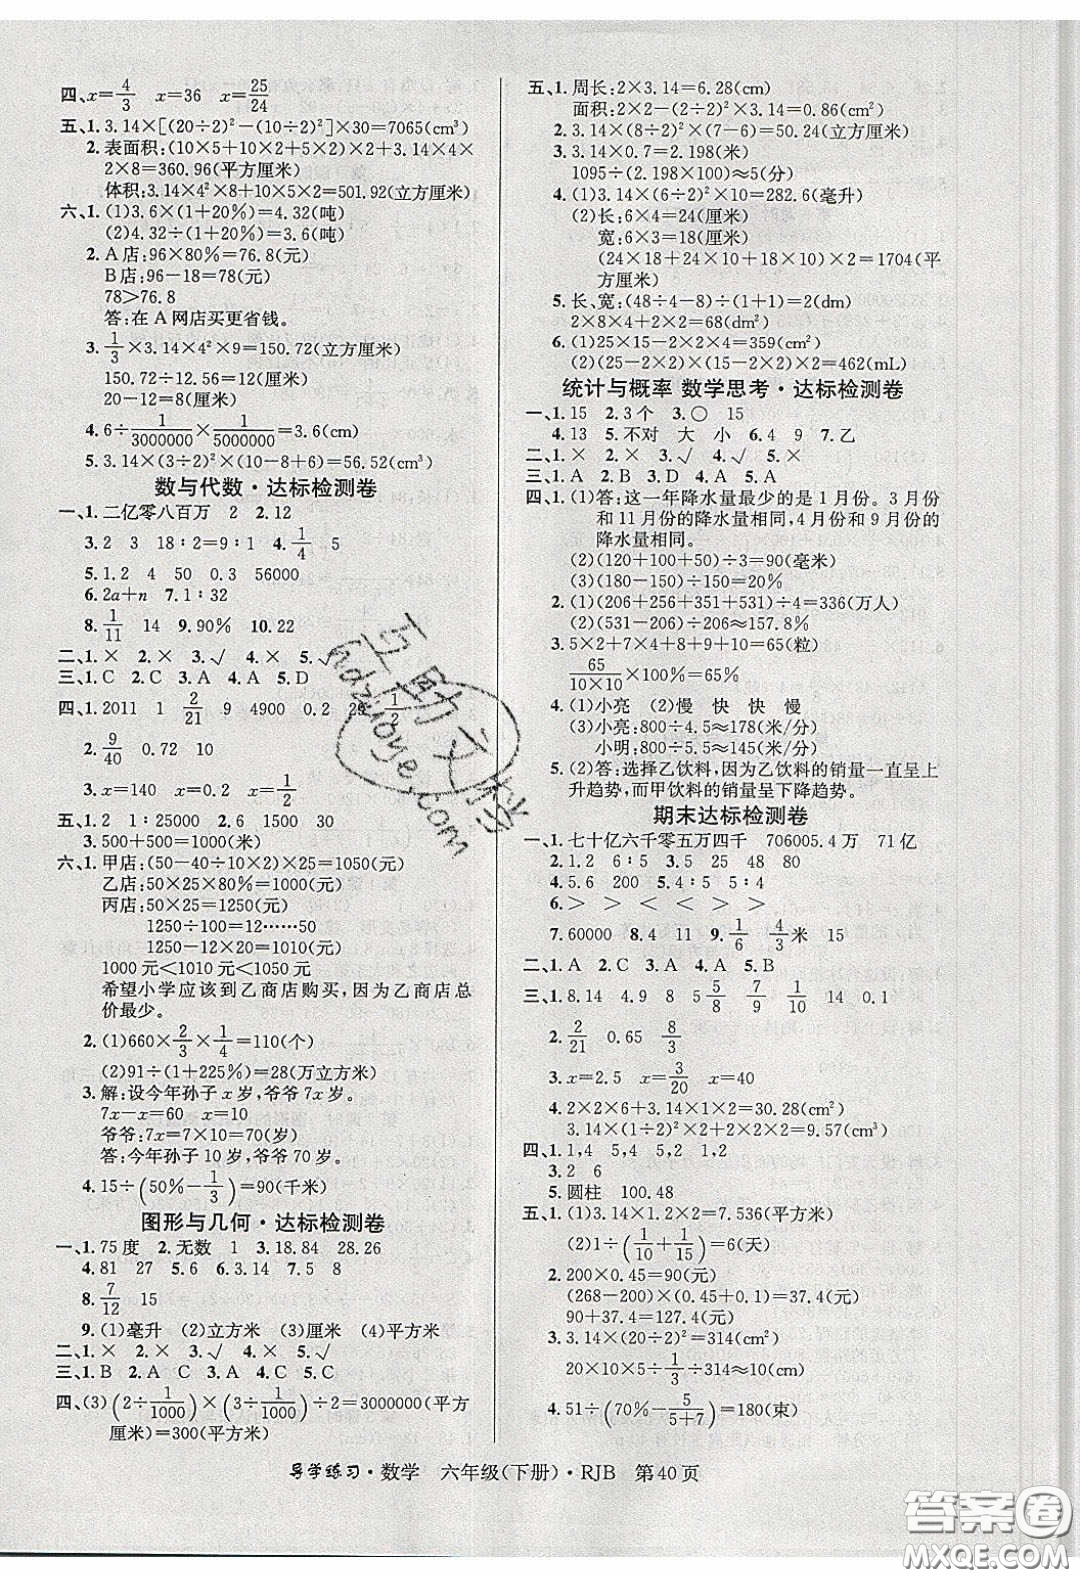 四、x=4/3 x=36 x=25/24
五、1. 3.14×[(20÷2)²-(10÷2)²]×30=7065(cm³)
2. 表面积:(10×5+10×2+5×2)×2+3.14×4×
2×8=360.96(平方厘米)
体积:3.14×4²×8+10×5×2=501.92(立方厘米)
六、1. (1)3.6×(1+20%)=4.32(吨)
(2)4.32÷(1+20%)=3.6(吨)
2. A店:96×80%=76.8(元)
B店:96-18=78(元)
78>76.8
答:在A网店买更省钱。
3. 1/3×3.14×4²×9=150.72(立方厘米)
150.72÷12.56=12(厘米)
20-12=8(厘米)
4. 6÷1/3000000×1/5000000=3.6(cm)
5. 3.14×(3÷2)²×(10-8+6)=56.52(cm³)
数与代数·达标检测卷
一、1. 二亿零八百万 2 2. 12
3. 2 3 18∶2=9∶1 4. 1/4 5
5. 1.2 4 50 0.3 56000
6. 2a+n 7. 1∶32
8. 1/11 14 9. 90% 10. 22
二、1. × 2. × 3. √ 4. × 5. √
三、1. C 2. C 3. A 4. A 5. D
四、1. 2011 1 2/21 9 4900 0.2 29 1/2
2. 9/40 0.72 10
3. x=140 x=0.2 x=1/2
五、1. 2 1∶25000 2. 6 1500 30
3. 500+500=1000(米)
六、1. 甲店:(50-40÷10×2)×25=1050(元)
乙店:50×25×80%=1000(元)
丙店:50×25=1250(元)
1250÷100=12……50(元)
1250-12×20=1010(元)
1000元<1010元<1050元
希望小学应该到乙商店购买,因为乙商店总
价最少。
2. (1)660×2/3×1/4=110(个)
(2)91÷(1+225%)=28(万立方米)
3. 解:设今年孙子x岁,爷爷7x岁。
7x-x=60 x=10
爷爷:7x=7×10=70(岁)
答:今年孙子10岁,爷爷70岁。
4. 15÷(50%-1/3)=90(千米)
图形与几何·达标检测卷
一、1. 75度 2. 无数 1 3. 18.84 28.26
4. 81 27 5. 6 6. 3.14 7. 5 8
8. 7/12 15
9. (1)毫升 (2)立方米 (3)厘米 (4)平方米
二、1. × 2. √ 3. × 4. × 5. √
三、1. B 2. A 3. A 4. C 5. C
四、(3)(2÷1/1000)×(3÷1/1000)÷2=3000000(平方
厘米)=300(平方米)
五、1. 周长:2×3.14=6.28(cm)
面积:2×2-(2÷2)²×3.14=0.86(cm²)
2. 3.14×(8÷2)²×(7-6)=50.24(立方厘米)
3. 3.14×0.7=2.198(米)
1095÷(2.198×100)≈5(分)
4. (1)3.14×(6÷2)²×10=282.6(毫升)
(2)长:6×4=24(厘米)
宽:6×3=18(厘米)
(24×18+24×10+18×10)×2=1704(平
方厘米)
5. 长、宽:(48÷4-8)÷(1+1)=2(dm)
2×8×4+2×2=68(dm²)
6. (1)25×15-2×2×4=359(cm²)
(2)(25-2×2)×(15-2×2)×2=462(mL)
统计与概率 数学思考·达标检测卷
一、1. 15 2. 3个 3. ○ 15
4. 13 5. 不对 大 小 6. 4 9 7. 乙
二、1. × 2. × 3. √ 4. √ 5. ×
三、1. A 2. B 3. D 4. A 5. A
四、1. (1)答:这一年降水量最少的是1月份。3月份
和11月份的降水量相同,4月份和9月份的
降水量相同。
(2)(120+100+50)÷3=90(毫米)
(3)(180-150)÷150=20%
2. (1)(206+256+351+531)÷4=336(万人)
(2)(531-206)÷206≈157.8%
3. 5×2+7×4+8+9+10=65(粒)
65/10×10×100%=65%
4. (1)小亮 (2)慢 快 快 慢
(3)小亮:800÷4.5≈178(米/分)
小明:800÷5.5≈145(米/分)
5. (2)答:选择乙饮料,因为乙饮料的销量一直呈上
升趋势,而甲饮料的销量呈下降趋势。
期末达标检测卷
一、1. 七十亿六千零五万四千 706005.4万 71亿
2. 1.2 6∶5 3. 25 48 80
4. 5.6 200 5. 4∶5 5∶4
6. > > < < > >
7. 60000 8. 4 11 9. 1/6 4/3米 15
二、1. A 2. C 3. A 4. A 5. B
三、1. 8.14 4.9 8 5 5/8 7/9 1/10 14 0.1
2. 2/21 0.65 8/3
3. x=2.5 x=3/20 x=40
4. 2×2×6+3.14×1×2=30.28(cm²)
3.14×(2÷2)²×2÷2+2×2×2=9.57(cm³)
四、1. 1,4 5,4 5,2 1,2
3. 2 6
5. 圆柱 100.48
五、1. (1)3.14×1.2×2=7.536(平方米)
(2)1÷(1/10+1/15)=6(天)
2. 200×0.45=90(元)
(268-200)×(0.45+0.1)=37.4(元)
90+37.4=127.4(元)
3. 3.14×(20÷2)²=314(cm²)
20×10×5÷1/3÷314≈10(cm)
4. 51÷(70%-5/5+7)=180(束)
导学练习·数学 六年级(下册)·RJB 第40页
互助文档
hdzuoye.com
答案圈
MXQE.COM